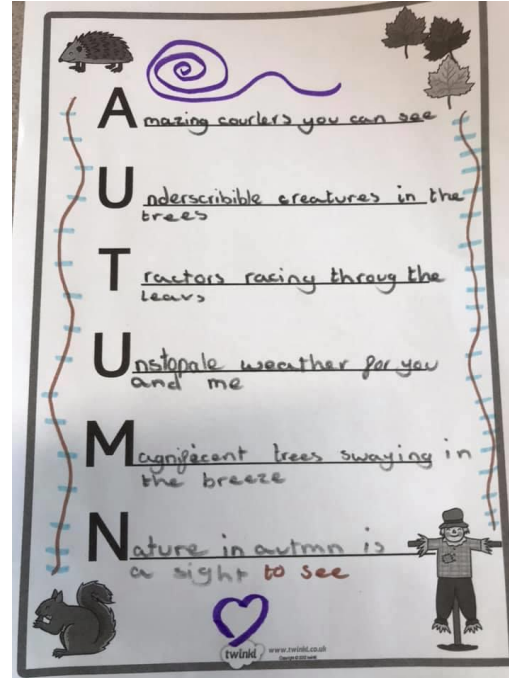 Amazing courlers you can see
Underscribible creatures in the
trees
Tractors racing throug the
leavs
Unstopale weather for you
and me
Magnifecent trees swaying in
the breeze
Nature in autmn is
a sight to see
twinkl www.twinkl.co.uk